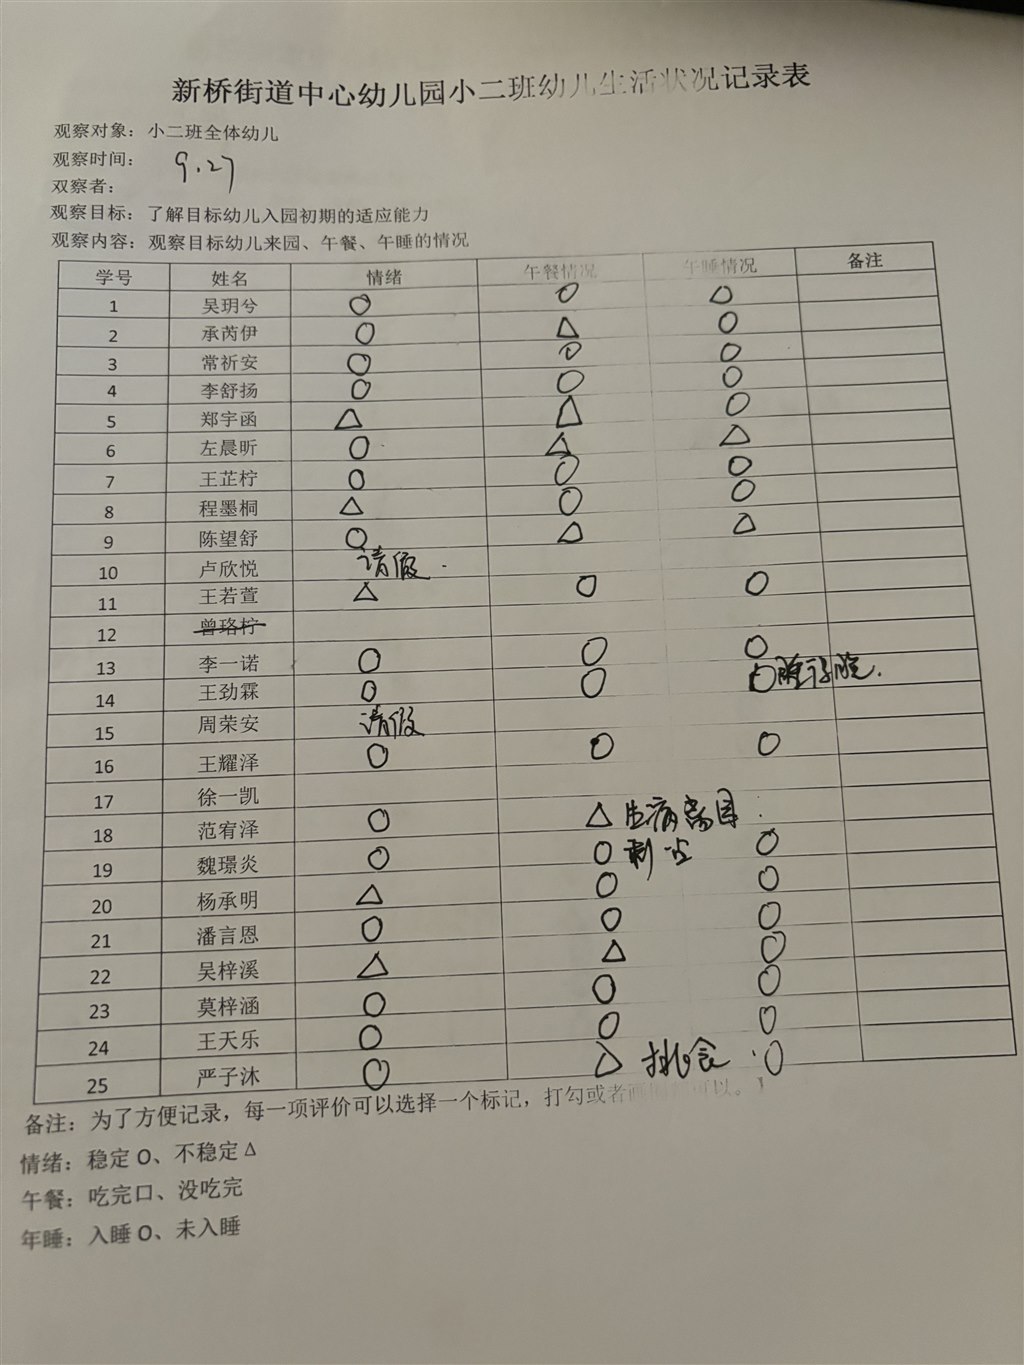 新桥街道中心幼儿园小二班幼儿生活状况记录表
观察对象：小二班全体幼儿
观察时间： 9.27
双察者：
观察目标：了解目标幼儿入园初期的适应能力
观察内容：观察目标幼儿来园、午餐、午睡的情况
学号 姓名 情绪 午餐情况 午睡情况 备注
1 吴玥兮 O O △
2 承芮伊 O △ O
3 常祈安 O O O
4 李舒扬 O O O
5 郑宇函 △ △ O
6 左晨昕 O △ △
7 王芷柠 O O O
8 程墨桐 △ O O
9 陈望舒 O △ △
10 卢欣悦 请假
11 王若萱 △ O O
12 曾珞柠
13 李一诺 O O O
14 王劲霖 O O O
15 周荣安 请假
16 王耀泽 O O O
17 徐一凯
18 范宥泽 O △ 生病离园
19 魏璟炎 O O 剩一半 O
20 杨承明 △ O O
21 潘言恩 O O O
22 吴梓溪 △ △ O
23 莫梓涵 O O O
24 王天乐 O O O
25 严子沐 O △ 挑食 O
备注：为了方便记录，每一项评价可以选择一个标记，打勾或者画圈都可以。】
情绪：稳定 O、不稳定 Δ
午餐：吃完口、没吃完
年睡：入睡 O、未入睡